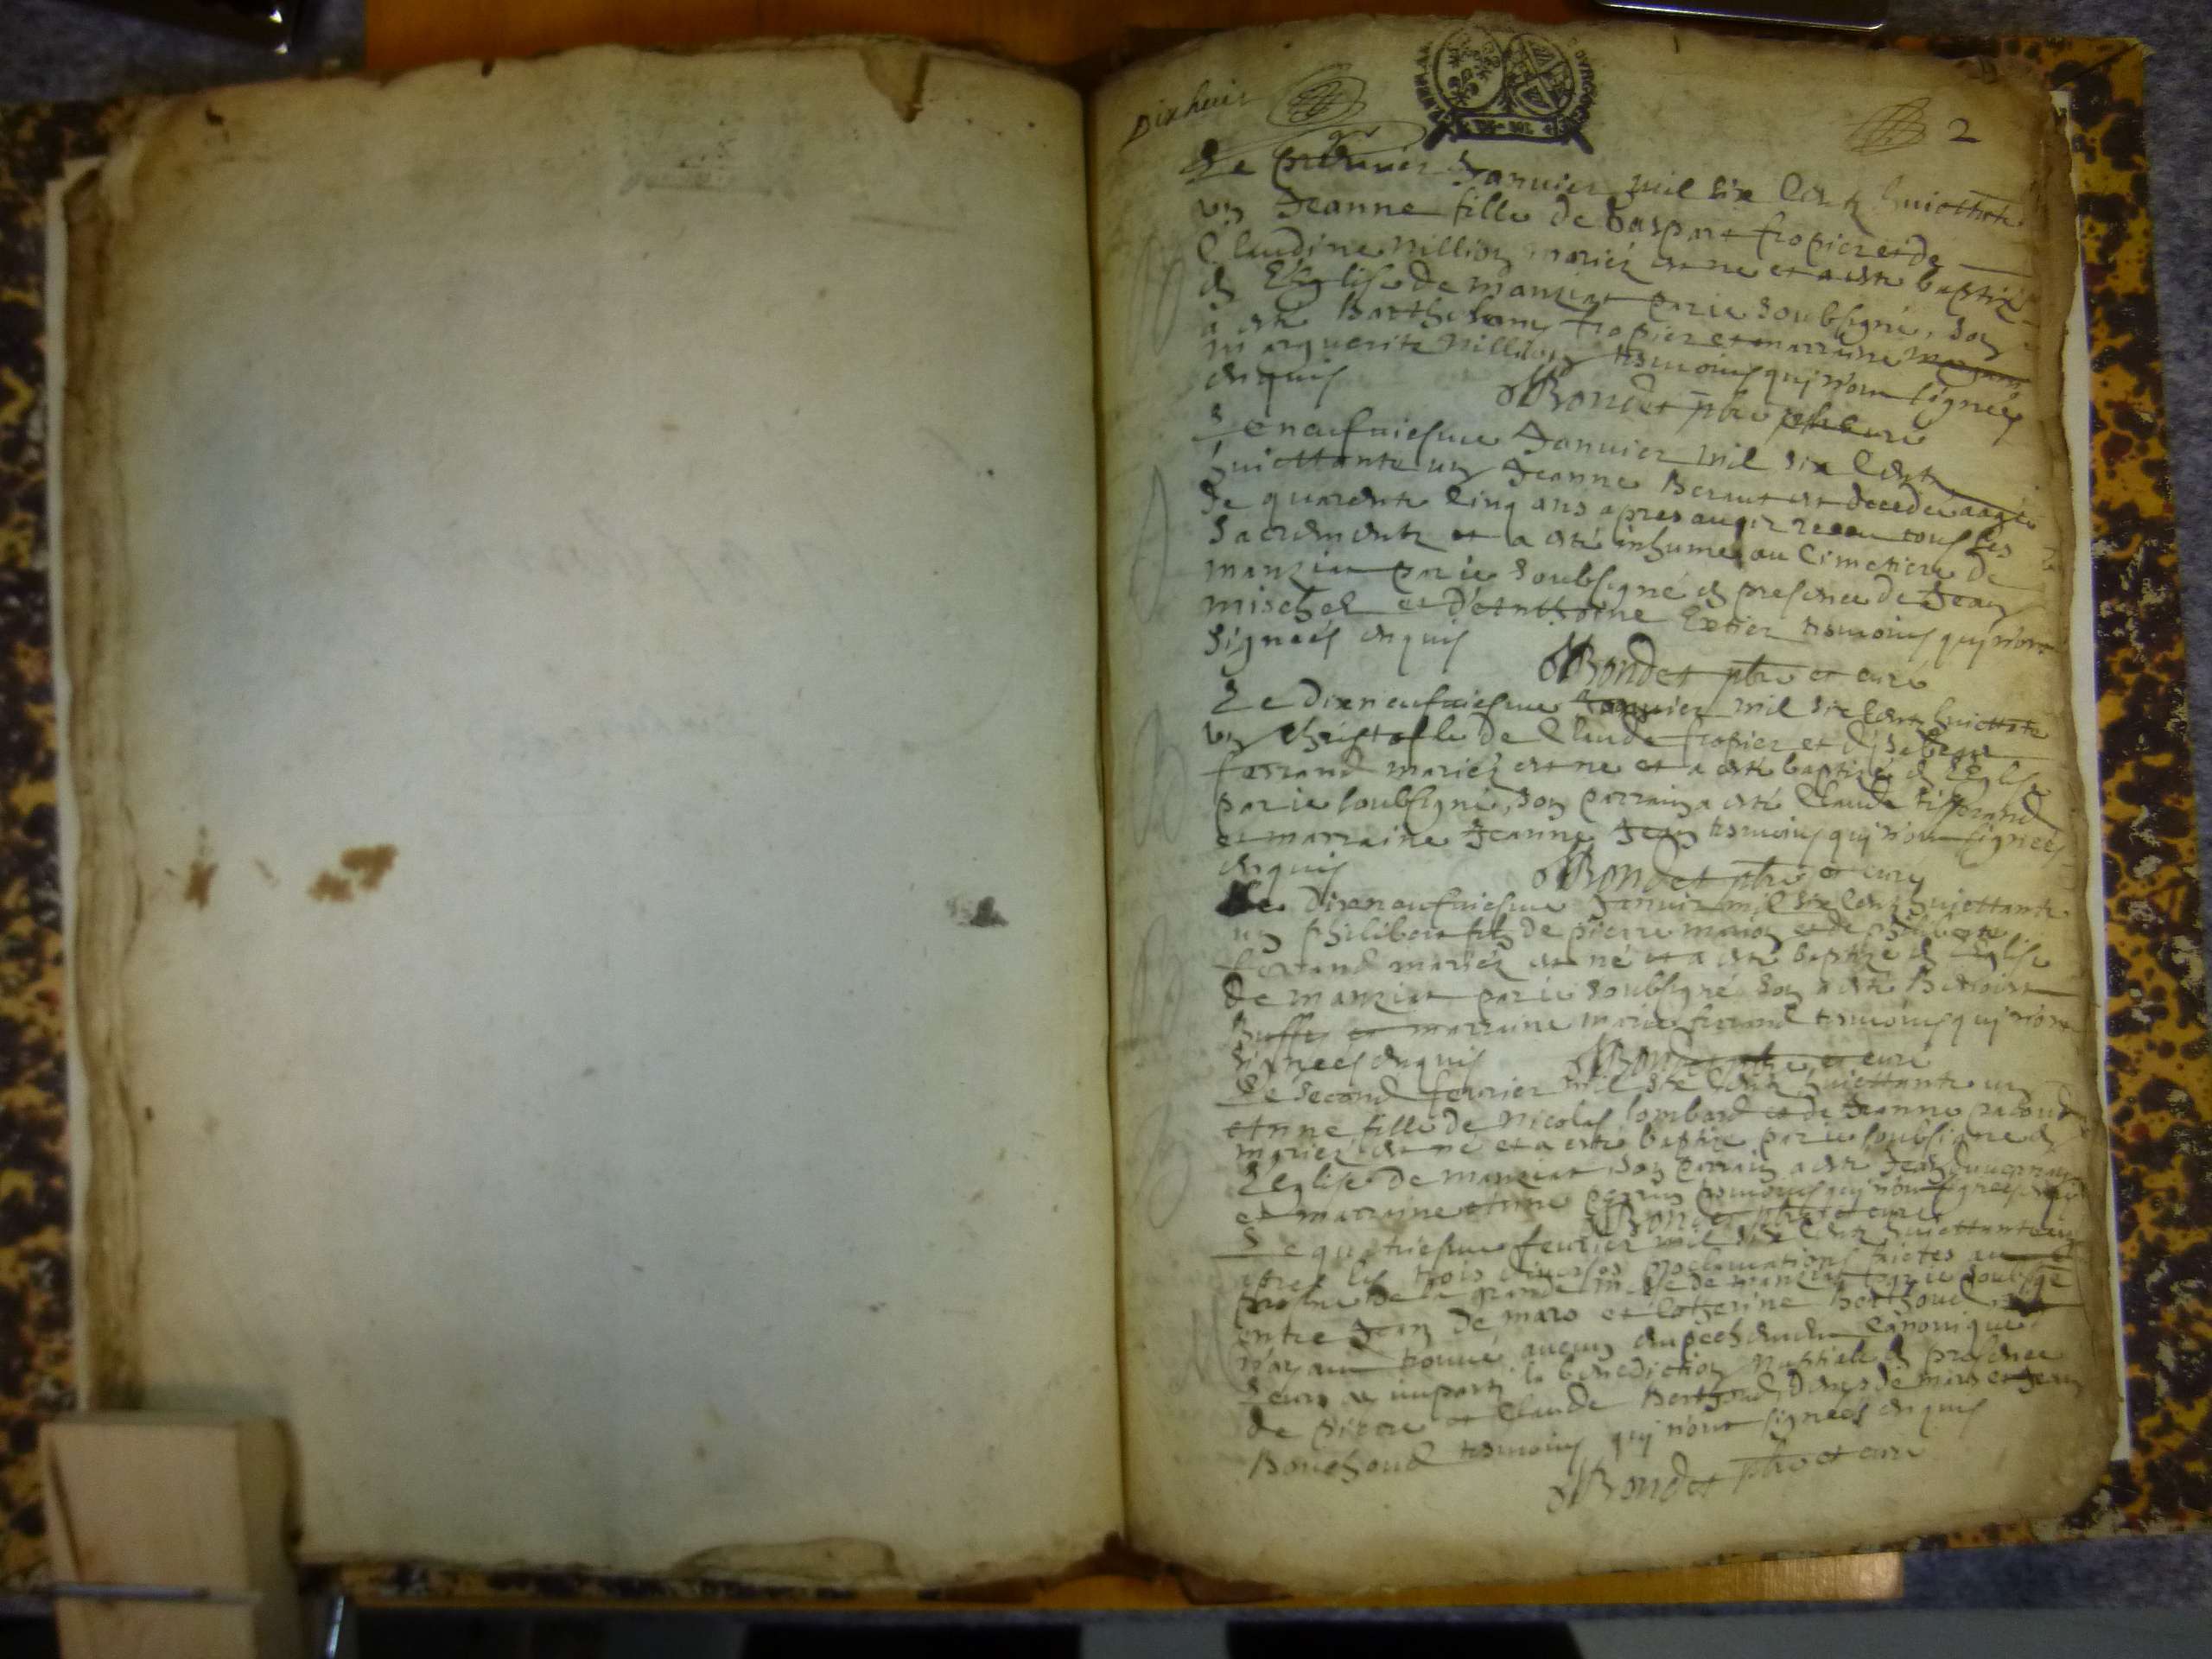 Dixhuit
2
Le premier Janvier mil six Cent huictante
un Jeanne fille de Gaspart fropier et de
Claudine Nillion mariez est ne et a esté baptizé
en L'Eglise de manziat par ie soubsigné, son
a esté Barthelemy fropier et marraine
marguerite Nillion tesmoins qui n'ont signees
enquis
Bondet pbre et curé
Le neufuiesme Januier mil six Cent
huictante un Jeanne Beraut est decedée aagée
de quarente Cinq ans apres auoir receu tous les
Sacrements et a esté inhumé au Cimetiere de
manziat par ie soubsigné en presence de Jean
mischel et d'Anthoine tesmoins qui n'ont
signeés enquis
Bondet pbre et curé
Le dixneufuiesme Januier mil six Cent huictante
un Christofle de Claude fropier et d'Isabeau
ferrand mariez est ne et a esté baptizé en L'Eglise
par ie soubsigné, son parrain a esté Claude
et marraine Jeanne Jean tesmoins qui n'ont signeés
enquis
Bondet pbre et curé
Le dixneufuiesme Januier mil six Cent huictante
un philibert filz de pierre et de philiberte
ferrand mariez est né et a esté baptizé en L'Eglise
de manziat par ie soubsigné son a esté Benoist
Buffy et marraine marie ferrand tesmoins qui n'ont
signeés enquis
Bondet pbre et curé
Le second feurier mil six Cent huictante un
Anne fille de Nicolas lombard et de Jeanne
mariez est né et a esté baptizé par ie soubsigné en
L'Eglise de manziat son parrain a esté Jean
et marraine Anne perrin tesmoins qui n'ont signeés
Bondet pbre et curé
Le quatriesme feurier mil six Cent huictante un
apres les trois diuerses proclamations faictes au
prosne de la grande messe de manziat par ie soubsigé
entre Jean de mars et Catherine Berthoud
n'ayant trouué aucun empechement Canonique
Leurs ay imparti la benediction Nuptiale en presence
de pierre et Claude Berthoud, Denis de mars et Jean
Bouchoud tesmoins qui n'ont signeés enquis
Bondet pbre et curé